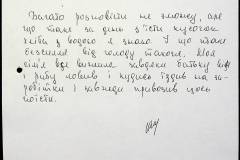 Багато розповіти не зможу, але
що таке за день з'їсти кусочок
хліба з водою я знаю. І що таке
безсилля від голоду також. Моя
сім'я вижила завдяки батьку
і рибу ловив і кудись їздив на за-
робітки і завжди привозив щось
поїсти.